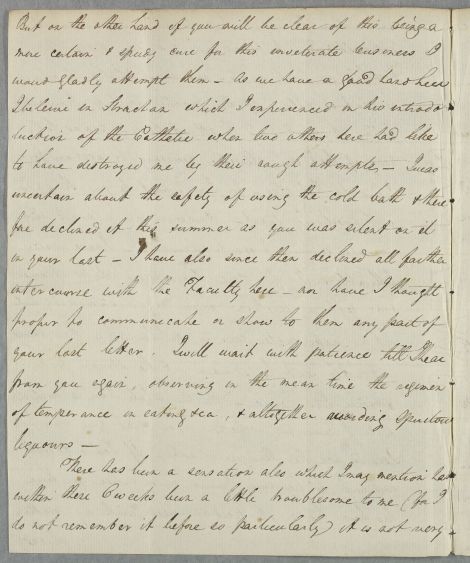 But on the other hand if you will be clear of this being a
more certain & speedy cure for this inveterate business I
would gladly attempt them – As we have a good hand here
I believe in Strachan which I experienced in his introdu
tuction of the Cathetre when two others here had like
to have destroyed me by their rough attempts – I was
uncertain about the safety of using the cold bath & there
fore declined it this summer as you was silent on it
in your last – I have also since then declined all farther
intercourse with the Faculty here – nor have I thought
proper to communicate or show to them any part of
your last letter. I will wait with patience till I hear
from you again, observing in the mean time the regimen
of temperance in eating &ca, & altogether avoiding spiritous
liquours –
There has been a sensation also which I may mention has
within these 6 weeks been a little troublesome to me (for I
do not remember it before so particularly) it is not very